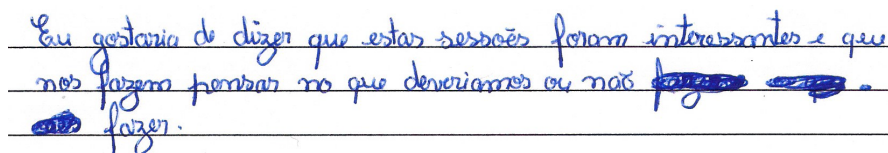 Eu gostaria de dizer que estas sessoēs foram interessantes e que
nos fazem pensar no que deveriamos ou naō .
fazer.